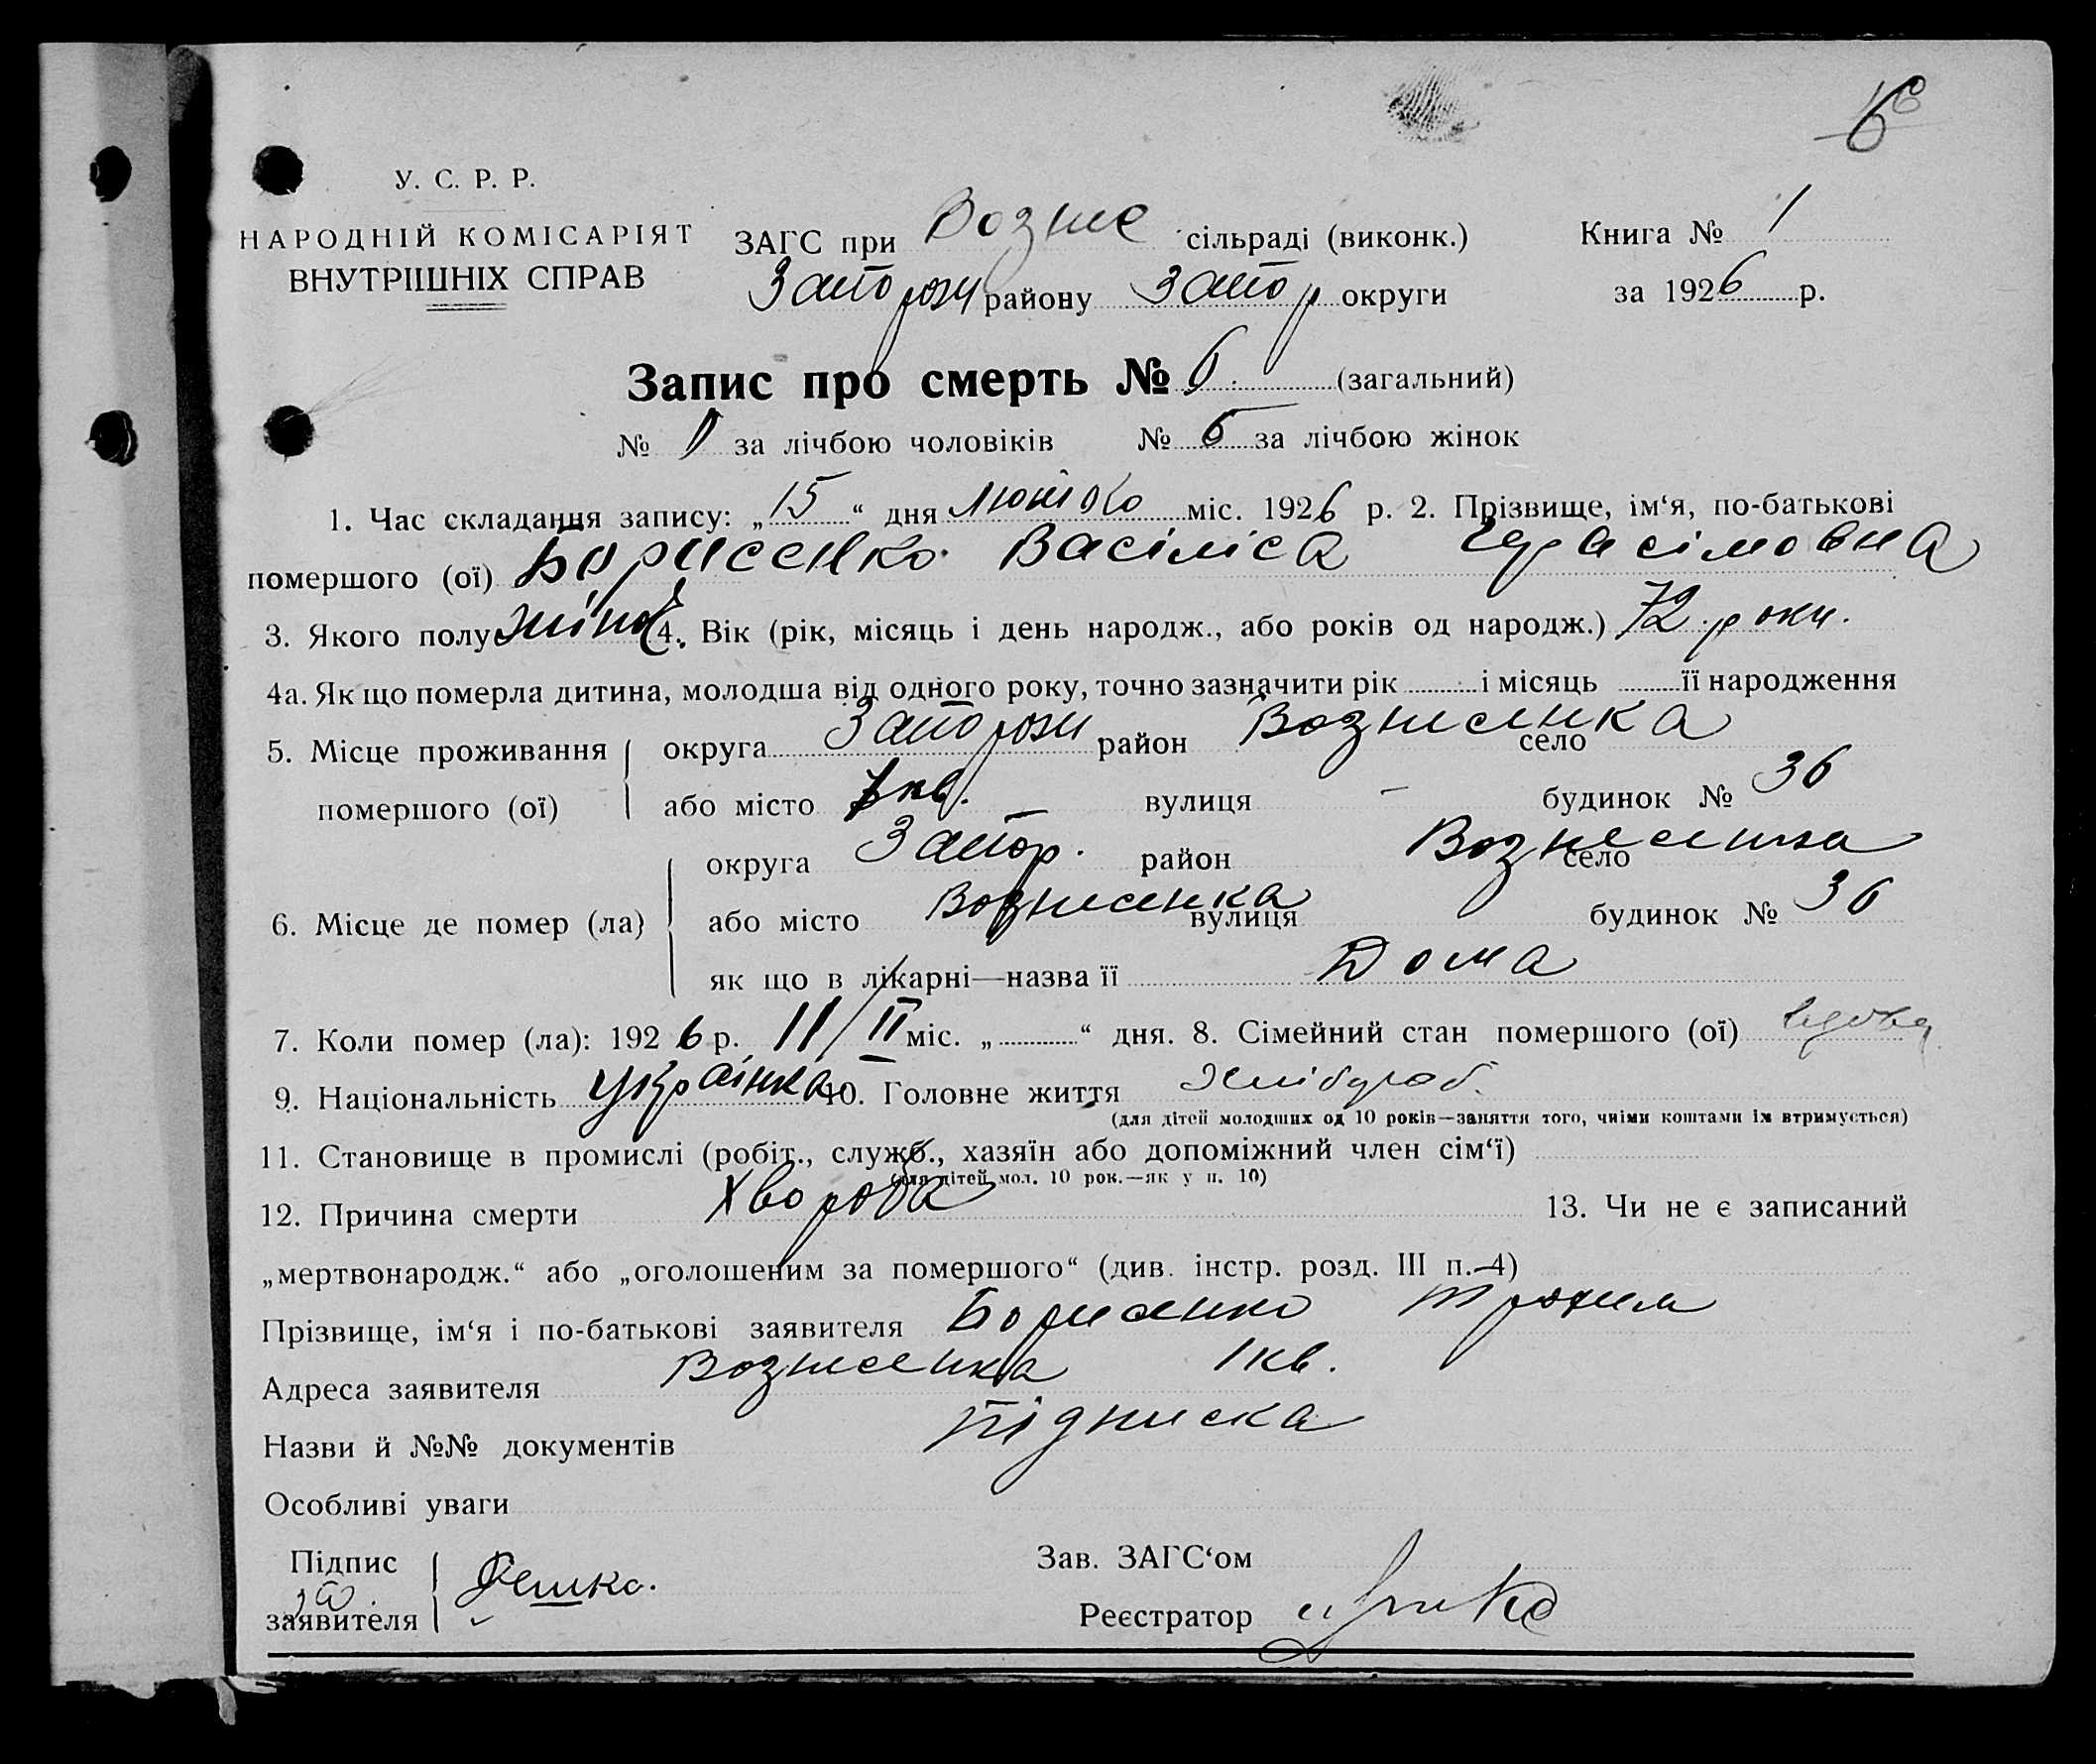 6
У. С. Р. Р.
НАРОДНІЙ КОМІСАРІЯТ
ВНУТРІШНІХ СПРАВ
ЗАГС при Возне сільраді (виконк.) Книга № 1
Запорожи району Запор округи за 1926 р.
Запис про смерть № 6. (загальний)
№ за лічбою чоловіків № 6 за лічбою жінок
1. Час складання запису: „15“ дня Лютого міс. 1926 р. 2. Прізвище, ім‘я, по-батькові
помершого (ої) Борисенко Васіліса Герасімовна
3. Якого полу жіноч 4. Вік (рік, місяць і день народж., або років од народж.) 72 роки.
4а. Як що померла дитина, молодша від одного року, точно зазначити рік і місяць її народження
5. Місце проживання округа Запорожи район Вознисенка село
помершого (ої) або місто 1 кв. вулиця - будинок № 36
округа Запор. район Вознесенка село
6. Місце де помер (ла) або місто Вознисенка вулиця будинок № 36
як що в лікарні—назва її Дома
7. Коли помер (ла): 1926 р. 11/II міс. „ “ дня. 8. Сімейний стан помершого (ої) вдова
9. Національність Українка 10. Головне життя Хлібороб.
(для дітей молодших од 10 років—заняття того, чиїми коштами їх втримується)
11. Становище в промислі (робіт., служб., хазяїн або допоміжний член сім‘ї)
(для дітей мол. 10 рок.—як у п. 10)
12. Причина смерти Хвороба 13. Чи не є записаний
„мертвонародж.“ або „оголошеним за помершого“ (див. інстр. розд. III п. 4)
Прізвище, ім‘я і по-батькові заявителя Борисенко Трохим
Адреса заявителя Вознисенка 1 кв.
Назви й №№ документів підписка
Особливі уваги
Підпис Зав. ЗАГС‘ом
заявителя Реєстратор